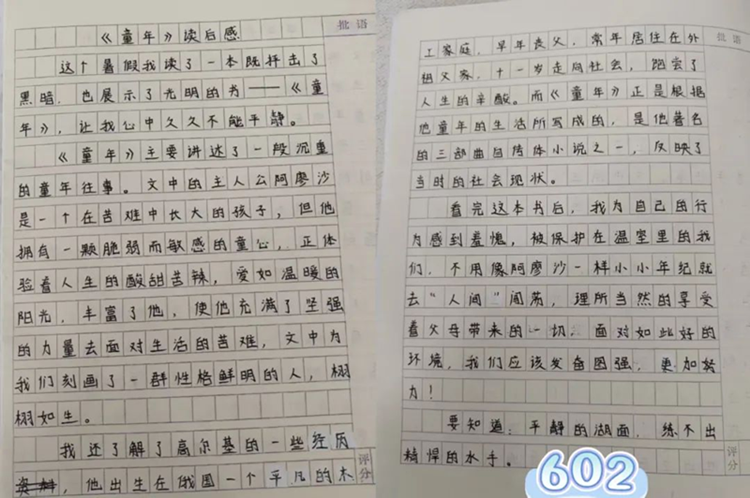 批语
《童年》读后感
这个暑假我读了一本既抨击了
黑暗，也展示了光明的书——《童
年》，让我心中久久不能平静。
《童年》主要讲述了一段沉重
的童年往事。文中的主人公阿廖沙
是一个在苦难中长大的孩子，但他
拥有一颗脆弱而敏感的童心，正体
验着人生的酸甜苦辣，爱如温暖的
阳光，丰富了他，使他充满了坚强
的力量去面对生活的苦难，文中为
我们刻画了一群性格鲜明的人，栩
栩如生。
我还了解了高尔基的一些经历
，他出生在俄国一个平凡的木
评分
批语
工家庭，早年丧父，常年居住在外
祖父家，十一岁走向社会，陷尝了
人生的辛酸。而《童年》正是根据
他童年的生活所写成的，是他著名
的三部曲自传体小说之一，反映了
当时的社会现状。
看完这本书后，我为自己的行
为感到羞愧，被保护在温室里的我
们，不用像阿廖沙一样小小年纪就
去“人间”闯荡，理所当然的享受
着父母带来的一切，面对如此好的
环境，我们应该发奋图强，更加努
力！
要知道：平静的湖面，练不出
精悍的水手。
评分
602